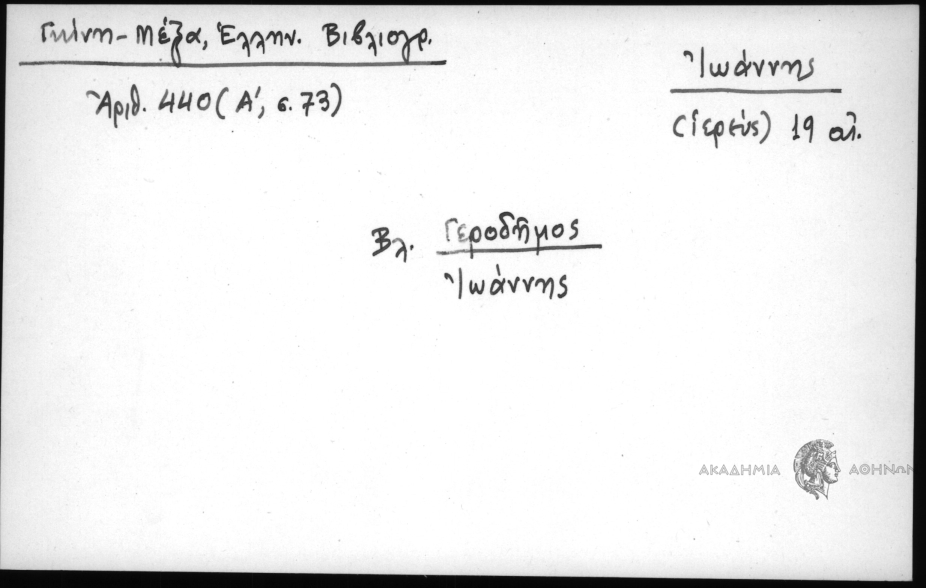 Γκίνη-Μέξα, Ἑλλην. Βιβλιογρ.
Ἀριθ. 440 (Α', σ. 73)
Ἰωάννης
(ἱερεύς) 19 αἰ.
Βλ. Γεροδῆμος
Ἰωάννης
ΑΚΑΔΗΜΙΑ ΑΘΗΝΩΝ